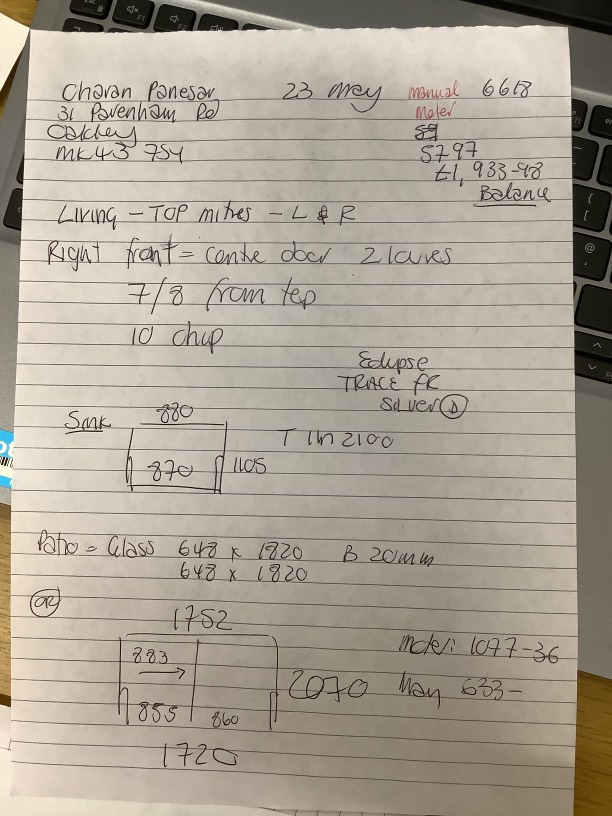 Charan Panesar 23 May manual 6618
31 Pavenham Rd Meter
Oakley
MK43 7SY 5797
£1,933-48
Balance
Living - TOP mitres - L & R
Right front = centre door 2 louvres
7/8 from top
10 chip
Eclipse
TRACE FR
Silver D
Smk 880
870 1105 T 2100
Patio = Glass 648 x 1820 B 20mm
648 x 1820
OR
1752
883 1077-36
2070 May 633-
855 860
1720